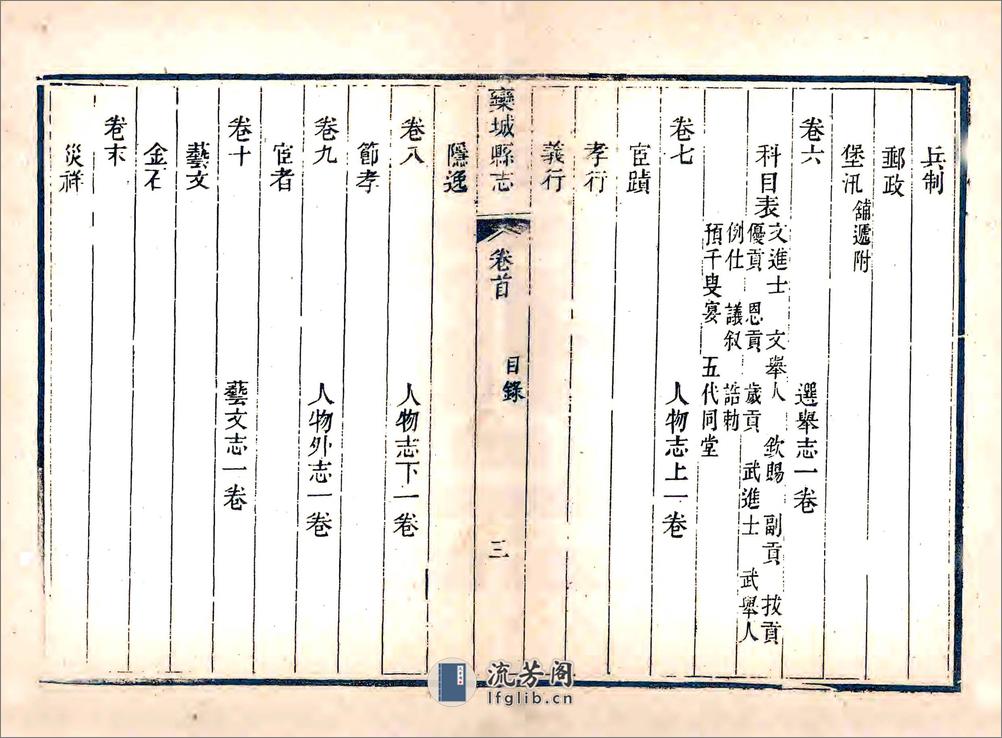 兵制
郵政
堡汛 舖遞附
卷六 選舉志一卷
科目表 文進士 文舉人 欽賜 副貢 拔貢
優貢 恩貢 歲貢 武進士 武舉人
例仕 議叙 誥勅
預千叟宴 五代同堂
卷七 人物志上一卷
宦蹟
孝行
義行
欒城縣志 卷首 目錄 三
隱逸
卷八 人物志下一卷
節孝
卷九 人物外志一卷
宦者
卷十 藝文志一卷
藝文
金石
卷末
災祥
流芳阁
lfglib.cn